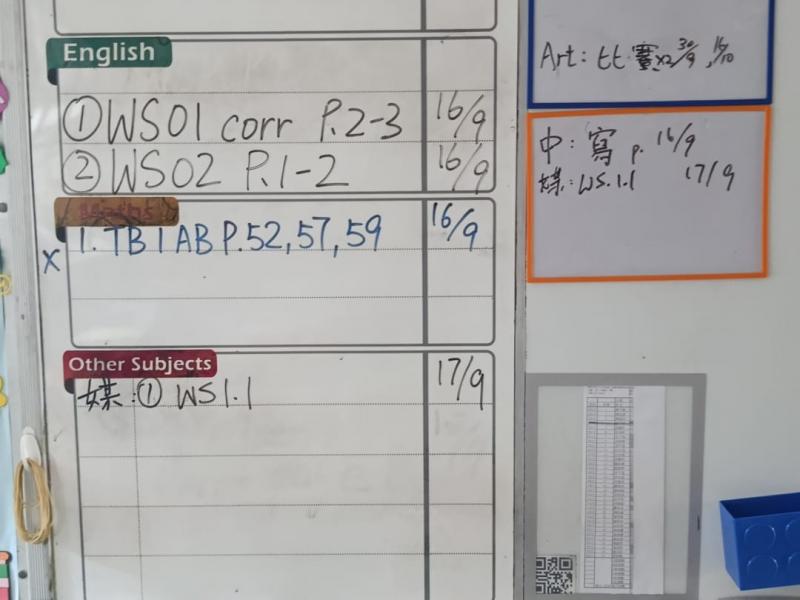 English
① WS01 corr P.2-3 16/9
② WS02 P.1-2 16/9
X 1. TB 1AB P.52, 57, 59 16/9
Other Subjects
媒:① WS1.1 17/9
Art: 比賽x2 30/9, 15/10
中: 寫 p. 16/9
媒: WS.1.1 17/9